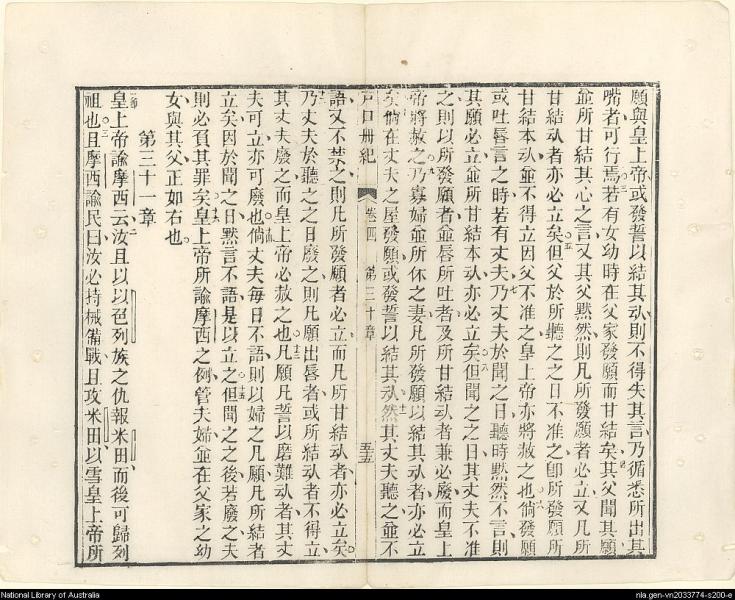 願與皇上帝或發誓以結其㧃則不得失其言乃循悉所出其
嘴者可行焉若有女幼時在父家發願而甘結矣其父聞其願
並所甘結其心之言又其父默然則凡所發願者必立又凡所
甘結㧃者亦必立矣但父於所聽之之日不准之卽所發願所
甘結本㧃並不得立因父不准之皇上帝亦將赦之也倘發願
或吐唇言之時若有丈夫乃丈夫於聞之日聽時默然不言則
其願必立並所甘結本㧃亦必立矣但聞之之日其丈夫不准
之則以所發願者並唇所吐者及所甘結㧃者兼必廢而皇上
帝將赦之乃寡婦並所休之妻凡所發願以結其㧃者亦必立
矣倘在丈夫之屋發願或發誓以結其㧃然其丈夫聽之並不
戶口冊紀 卷四 第三十章 五十五
語又不禁之則凡所發願者必立而凡所甘結㧃者亦必立矣
乃丈夫於聽之之日廢之則凡願出唇者或所結㧃者不得立
其丈夫廢之而皇上帝必赦之也凡願凡誓以磨難㧃者其丈
夫可立亦可廢也倘丈夫每日不語則以婦之凡願凡所結者
立矣因於聞之日默言不語是以立之但聞之之後若廢之夫
則必負其罪矣皇上帝所諭摩西之例管夫婦並在父家之幼
女與其父正如右也
第三十一章
皇上帝諭摩西云汝且以以色列族之仇報米田而後可歸列
祖也且摩西諭民曰汝必持械備戰且攻米田以雪皇上帝所
National Library of Australia
nla.gen-vn2033774-s200-e